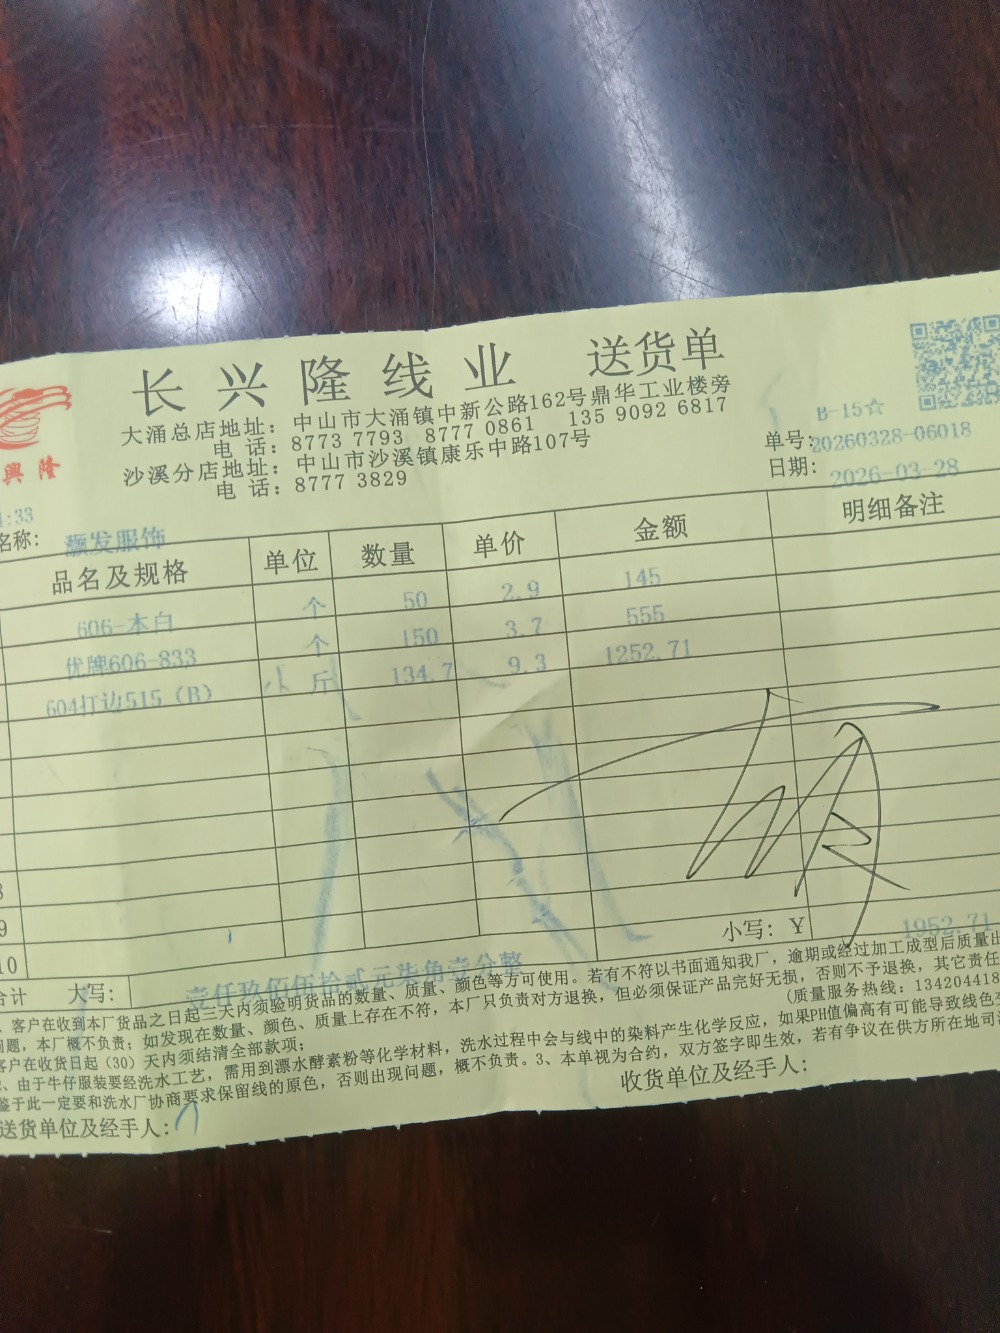 长兴隆线业 送货单
興隆
大涌总店地址：中山市大涌镇中新公路162号鼎华工业楼旁
电 话：8773 7793 8777 0861 135 9092 6817
沙溪分店地址：中山市沙溪镇康乐中路107号
电 话：8777 3829
B-15☆
单号：20260328-06018
日期：2026-03-28
:33
名称：灏发服饰
品名及规格 单位 数量 单价 金额 明细备注
606-本白 个 50 2.9 145
优牌606-833 个 150 3.7 555
604打边515（B） 斤 134.7 9.3 1252.71
8
9
10 小写：¥ 1952.71
合计 大写： 壹仟玖佰伍拾贰元柒角壹分整
、客户在收到本厂货品之日起三天内须验明货品的数量、质量、颜色等方可使用。若有不符以书面通知我厂，逾期或经过加工成型后质量出
问题，本厂概不负责；如发现在数量、颜色、质量上存在不符，本厂只负责对方退换，但必须保证产品完好无损，否则不予退换，其它责任
客户在收货日起（30）天内须结清全部款项；
（质量服务热线：13420441
、由于牛仔服装要经洗水工艺，需用到漂水酵素粉等化学材料，洗水过程中会与线中的染料产生化学反应，如果PH值偏高有可能导致线色
鉴于此一定要和洗水厂协商要求保留线的原色，否则出现问题，概不负责。3、本单视为合约，双方签字即生效，若有争议在供方所在地司
送货单位及经手人：
收货单位及经手人：